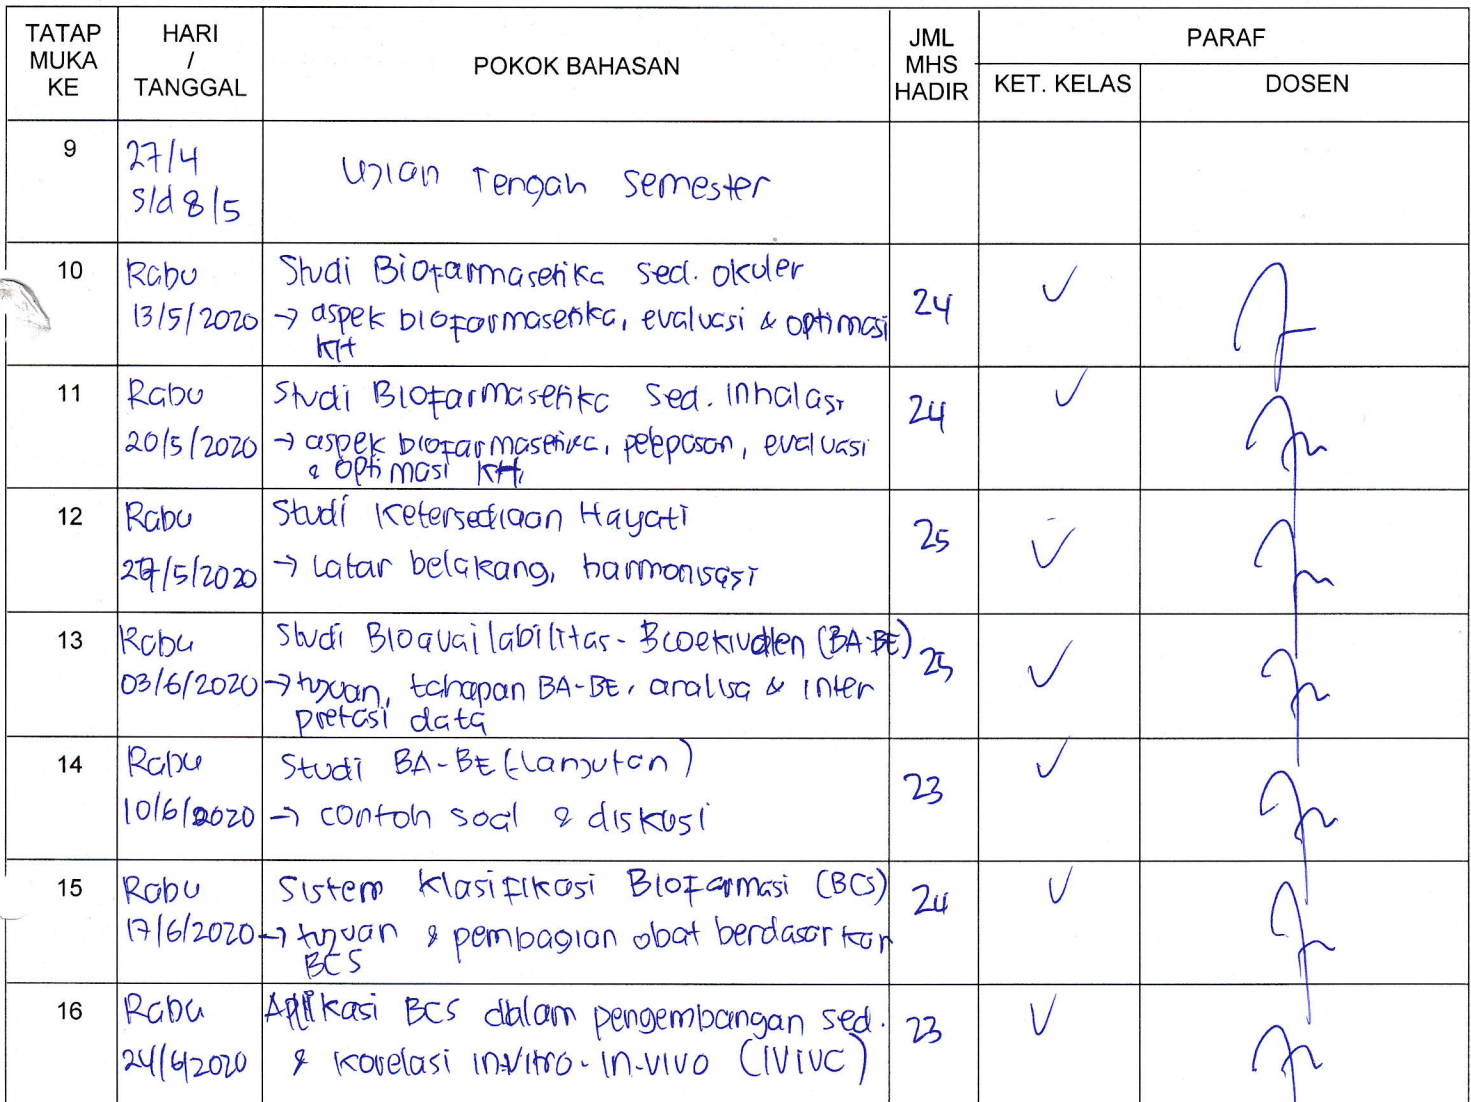 TATAP MUKA KE
HARI / TANGGAL
POKOK BAHASAN
JML MHS HADIR
PARAF
KET. KELAS
DOSEN
9
27/4
s/d 8/5
Ujian Tengah Semester
10
Rabu
13/5/2020
Studi Biofarmasetika sed. okuler
→ aspek biofarmasetika, evaluasi & optimasi
KH
24
✓
11
Rabu
20/5/2020
Studi Biofarmasetika Sed. Inhalasi
→ aspek biofarmasetika, pelepasan, evaluasi
& optimasi KH
24
✓
12
Rabu
27/5/2020
Studi Ketersediaan Hayati
→ Latar belakang, harmonisasi
25
✓
13
Rabu
03/6/2020
Studi Bioavailabilitas - Bioekivalen (BA-BE)
→ tujuan, tahapan BA-BE, analisa & inter
pretasi data
25
✓
14
Rabu
10/6/2020
Studi BA-BE (Lanjutan)
→ contoh soal & diskusi
23
✓
15
Rabu
17/6/2020
Sistem Klasifikasi Biofarmasi (BCS)
→ tujuan & pembagian obat berdasarkan
BCS
24
✓
16
Rabu
24/6/2020
Aplikasi BCS dalam pengembangan sed.
& korelasi in-vitro - in-vivo (IVIVC)
23
✓